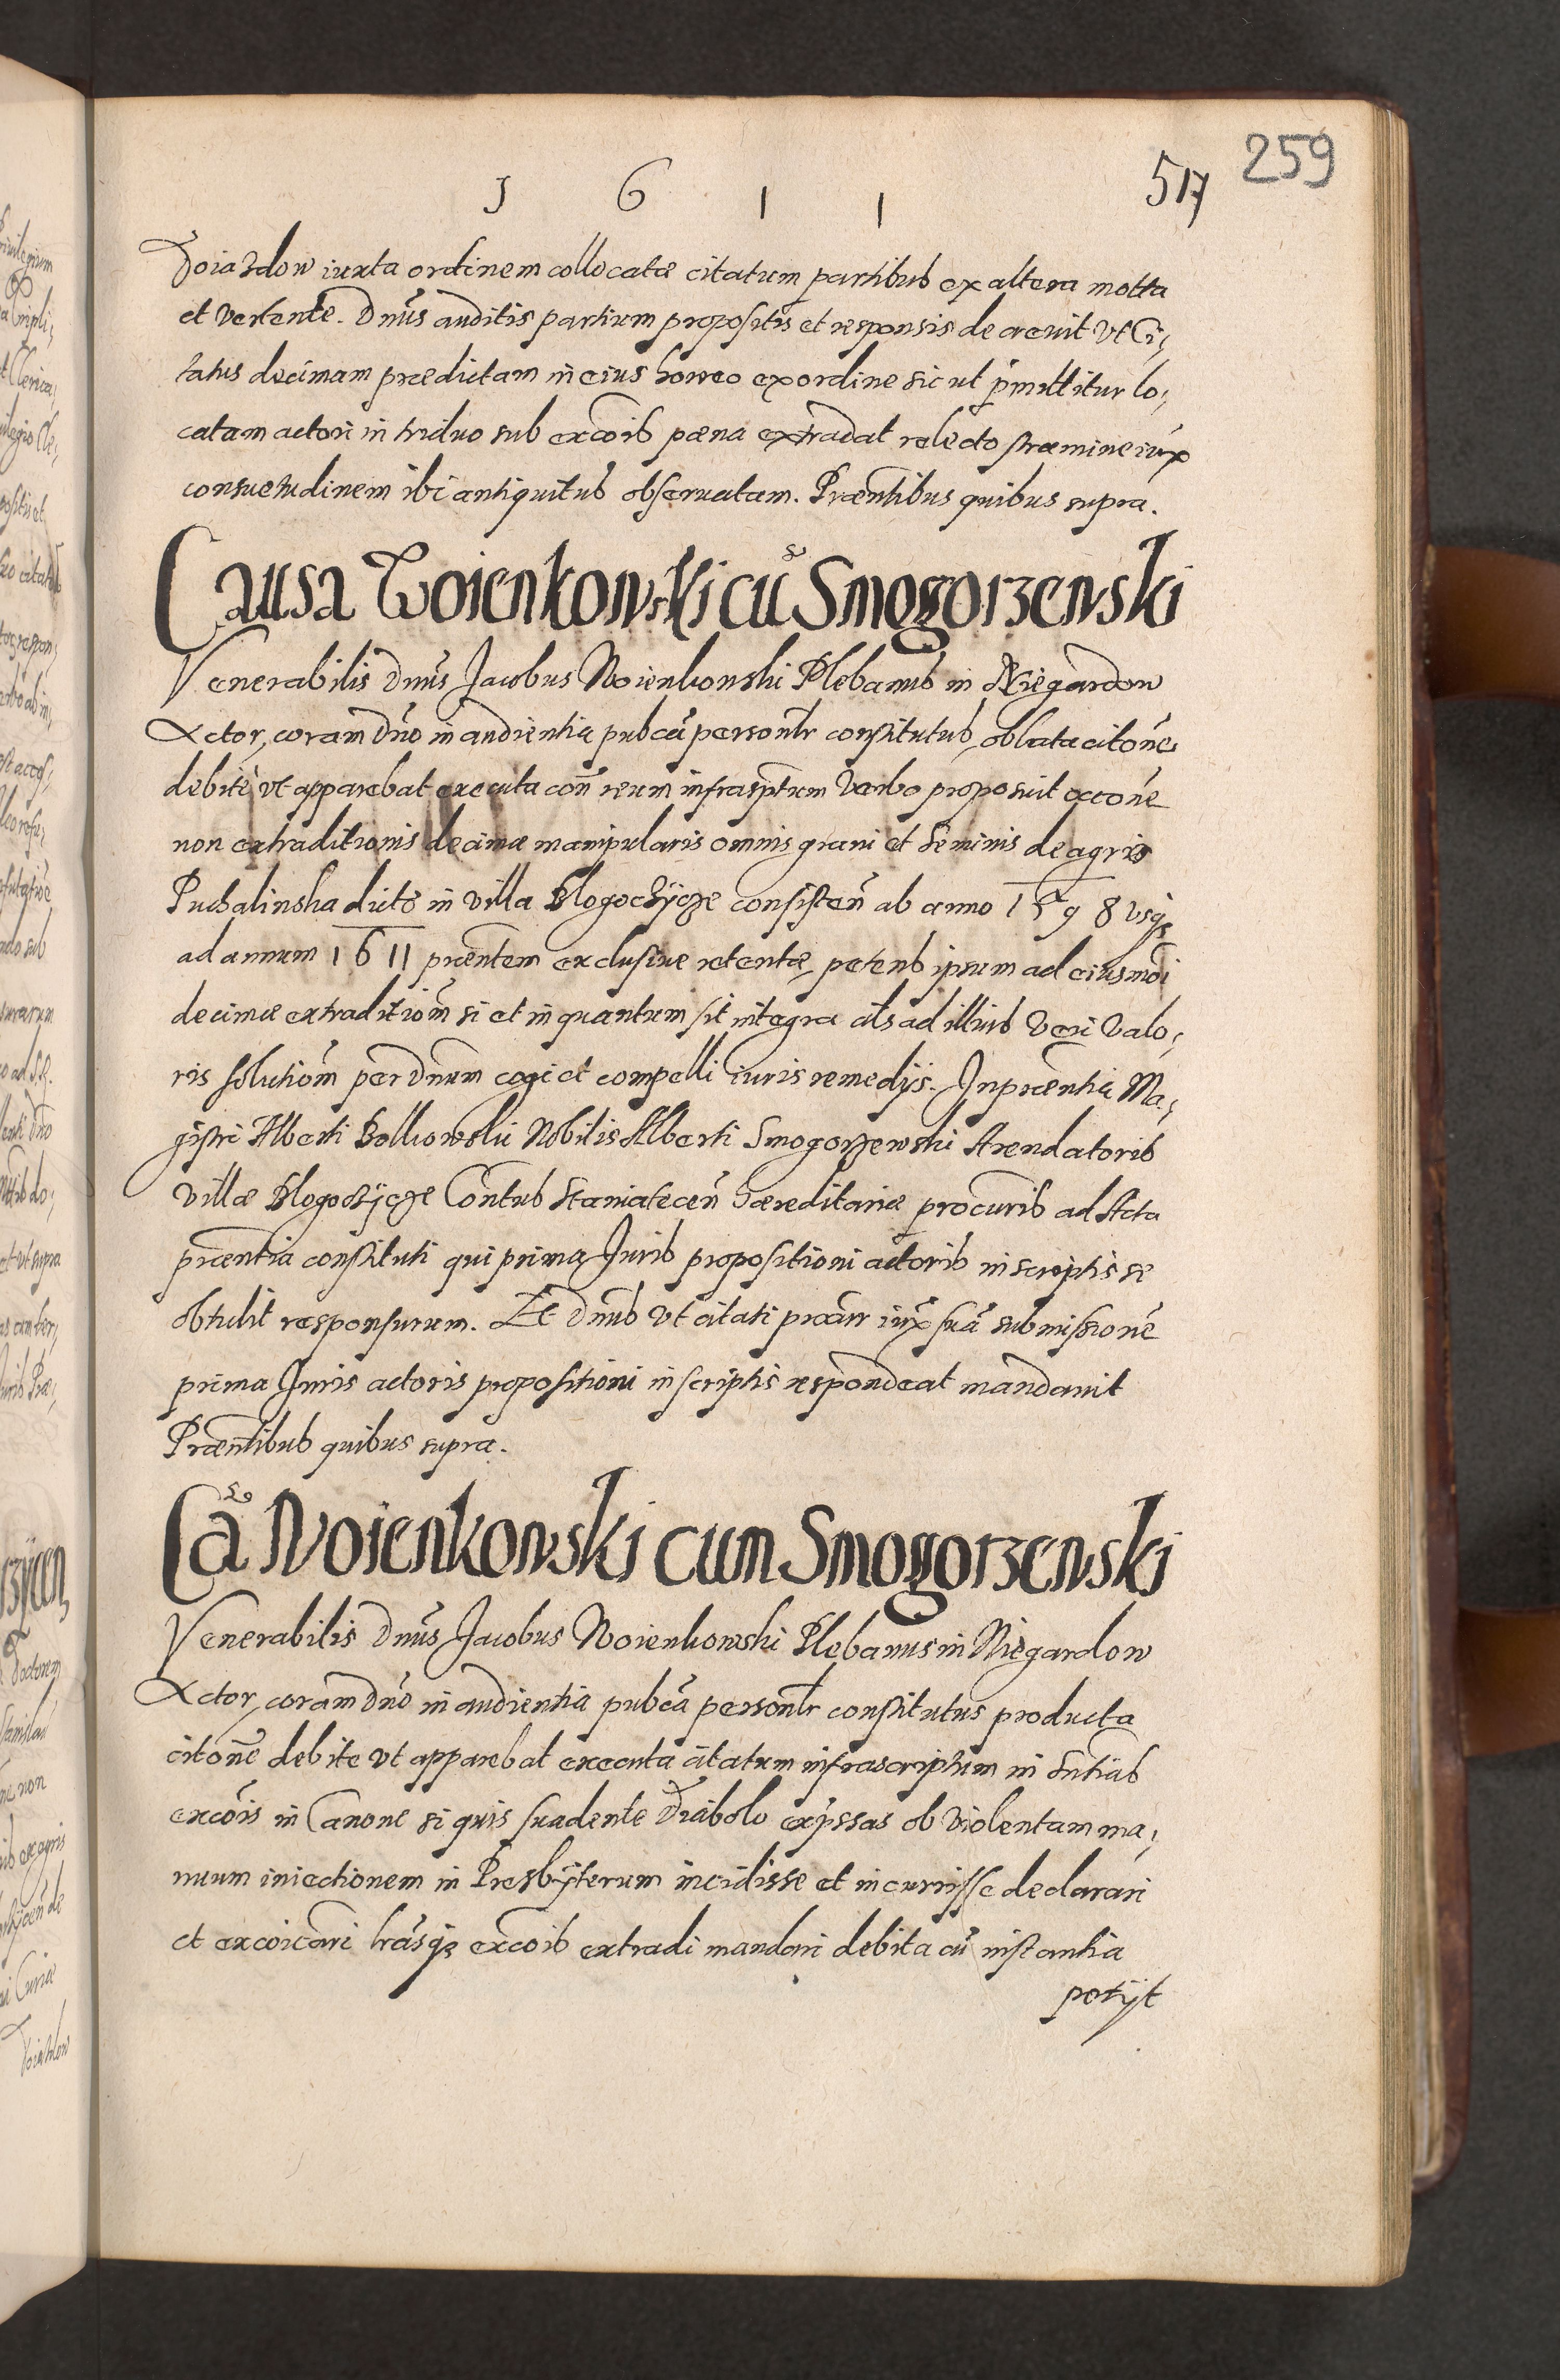 259
517
1 6 1 1
Voiazdow iuxta ordinem collocatæ citatum partibus ex altera motta
et vertente. Dnus auditis partium propositis et responsis decrevit vt Ci-
tatus decimam prædictam in eius horreo ex ordine sicut pmittitur lo-
catam actori in triduo sub excois pœna extradat relecto stræmine iux
consuetudinem ibi antiquitus obseruatam. Præntibus quibus supra.
Causa Woienkowski cũ Smogorzewski
Venerabilis Dnus Jacobus Woienkowski Plebanus in Niegardow
Actor, coram Dno in audientia pubca personlr constitutus, oblata citone
debite vt apparebat executa con reum infrasptum verbo proposuit accone
non extraditionis decimæ manipularis omnis grani et seminis de agris
Puchalinska dictis in villa Blogoczycze consisten ab anno 1598 vsq
ad annum 1611 præntem exclusive retentæ, petens ipsum ad eiusmoi
decimæ extraditiom si et in quantum sit integra als ad illius veri valo-
ris solutiom per Dnum cogi et compelli iuris remedijs. In præntia Ma-
gistri Alberti Bolkowski Nobilis Alberti Smogorzewski Arendatoris
villæ Blogoczycze Contus Staniatecen hæreditariæ procuris ad Acta
præntia constituti qui prima Juris propositioni actoris in scriptis se
obtulit responsurum. Et Dnus vt citati procur iux suã submissionẽ
prima Juris actoris propositioni in scriptis respondeat mandauit
Præntibus quibus supra.
Cã Woienkowski cum Smogorzewski
Venerabilis Dnus Jacobus Woienkowski Plebanus in Niegardow
Actor, coram Dno in audientia pubca personlr constitutus producta
citone debite vt apparebat executa citatum infrascriptum in sntias
excois in Canone si quis suadente Diabolo expssas ob violentam ma-
nuum iniectionem in Presbÿterum incidisse et incurrisse declarari
et excoicari lrasq excois extradi mandari debita cũ instantia
petijt